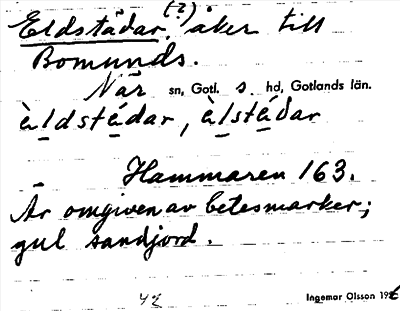 Eldstädar (?), åker till
Bomunds.
När sn, Gotl. s. hd, Gotlands län.
èldstédar, èlstédar
Hammaren 163.
Är omgiven av betesmarker;
gul sandjord.
42
Ingemar Olsson 192